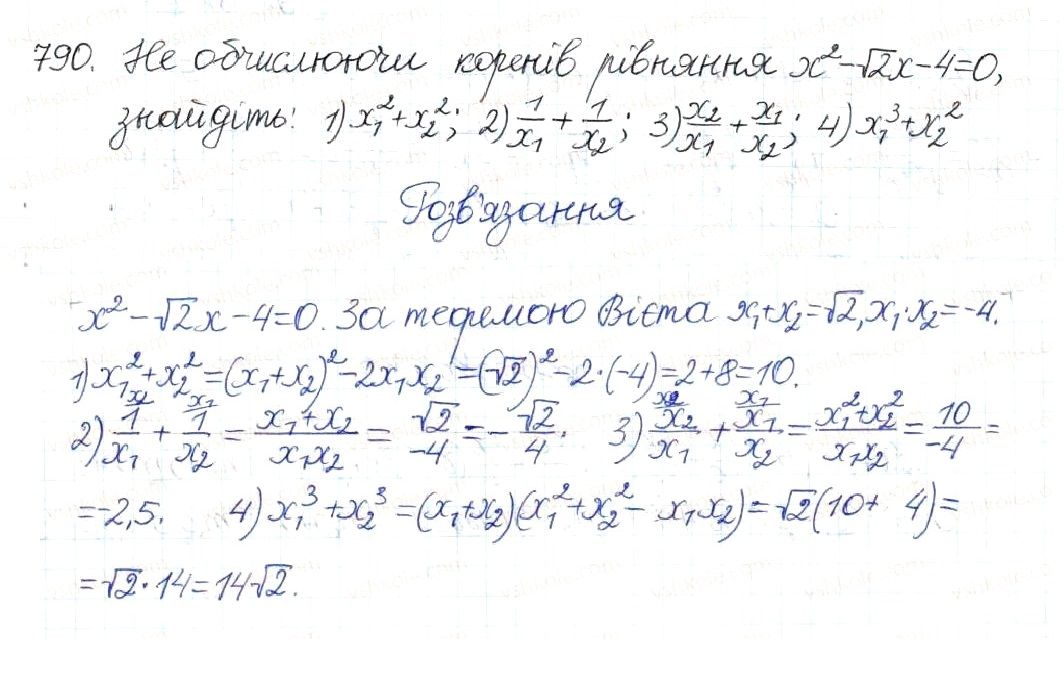 790. Не обчислюючи коренів рівняння x²-√2x-4=0,
знайдіть: 1) x₁²+x₂²; 2) 1/x₁ + 1/x₂; 3) x₂/x₁ + x₁/x₂; 4) x₁³+x₂²
Розв'язання
x²-√2x-4=0. За теремою Вієта x₁+x₂=√2, x₁·x₂=-4.
1) x₁²+x₂²=(x₁+x₂)²-2x₁x₂=(√2)²-2·(-4)=2+8=10.
2) ˣ²⁄1/x₁ + ˣ¹⁄1/x₂ = (x₁+x₂)/(x₁x₂) = √2/-4 = -√2/4. 3) ˣ²⁄x₂/x₁ + ˣ¹⁄x₁/x₂ = (x₁²+x₂²)/(x₁x₂) = 10/-4 =
=-2,5. 4) x₁³+x₂³=(x₁+x₂)(x₁²+x₂²-x₁x₂)=√2(10+4)=
=√2·14=14√2.